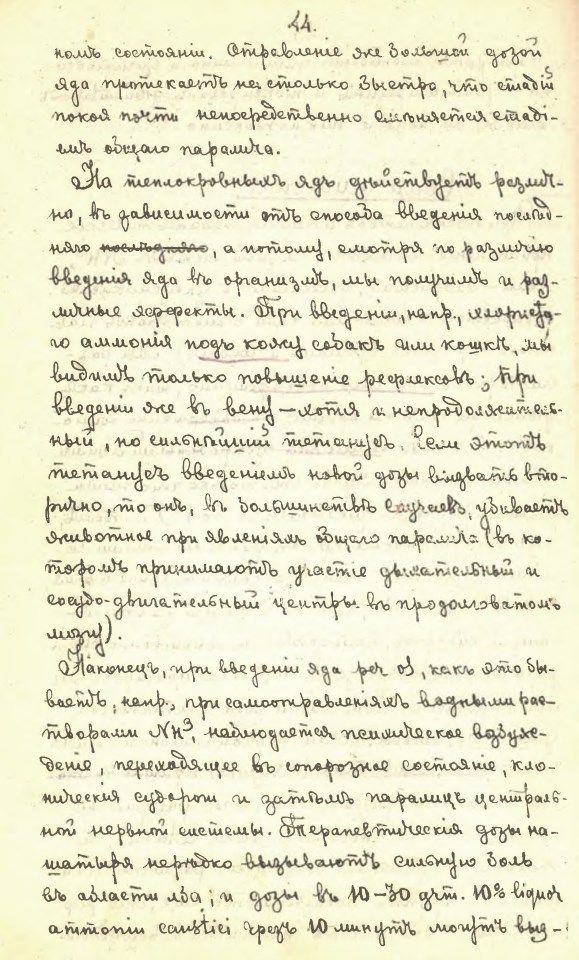 44.
номъ состоянiи. Отравленiе же большой дозой
яда протекаетъ на столько быстро, что стадiй
покоя почти непосредственно смѣняется стадi-
емъ общаго паралича.
На теплокровныхъ ядъ дѣйствуетъ различ-
но, въ зависимости отъ способа введенiя послѣд-
няго послѣдняго, а потому, смотря по различiю
введенiя яда въ организмъ, мы получимъ и раз-
личные эффекты. При введенiи, напр., хлористо-
го аммонiя подъ кожу собакъ или кошкъ, мы
видимъ только повышенiе рефлексовъ; при
введенiи же въ вену – хотя и непродолжитель-
ный, но сильнѣйшiй тетанусъ. Если этотъ
тетанусъ введенiемъ новой дозы вызвать вто-
рично, то онъ, въ большинствѣ случаевъ, убиваетъ
животное при явленiяхъ общаго паралича (въ ко-
торомъ принимаютъ участiе дыхательный и
сосудо-двигательный центры въ продолговатомъ
мозгу).
Наконецъ, при введенiи яда per os, какъ это бы-
ваетъ, напр., при самоотравленiяхъ водными рас-
творами NH³, наблюдается психическое возбуж-
денiе, переходящее въ сопорозное состоянiе, кло-
ническiя судороги и затѣмъ параличъ централь-
ной нервной системы. Терапевтическiя дозы на-
шатыря нерѣдко вызываютъ сильную боль
въ области лба; и дозы въ 10–30 grm. 10% liquor
ammonii caustici чрезъ 10 минутъ могутъ выз-